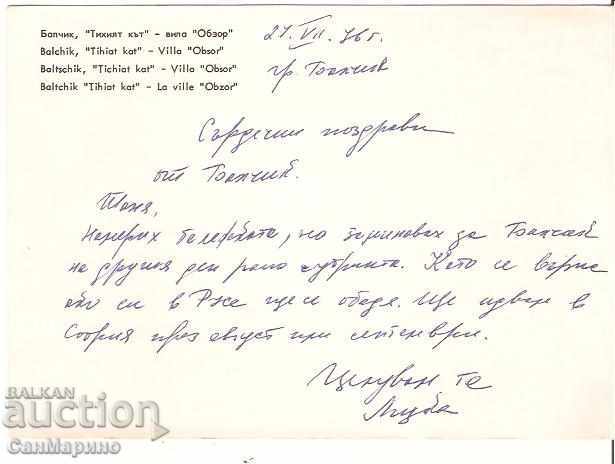 Балчик, "Тихият кът" – вила "Обзор"
Balchik, "Tihiat kat" – Villa "Obsor"
Baltschik, "Tichiat kat" – Villa "Obsor"
Baltchik "Tihiat kat" – La ville "Obzor"
27.VII.76 г.
гр. Балчик
Сърдечни поздрави
от Балчик.
Таня,
Намерих бележката, но заминавах за Балчик
на другия ден рано сутринта. Като се върна
ако си в Русе ще се обадя. Ще идвам в
София през август или септември.
Целувам те
Люба
БАЛКАН
auction
СанМарино